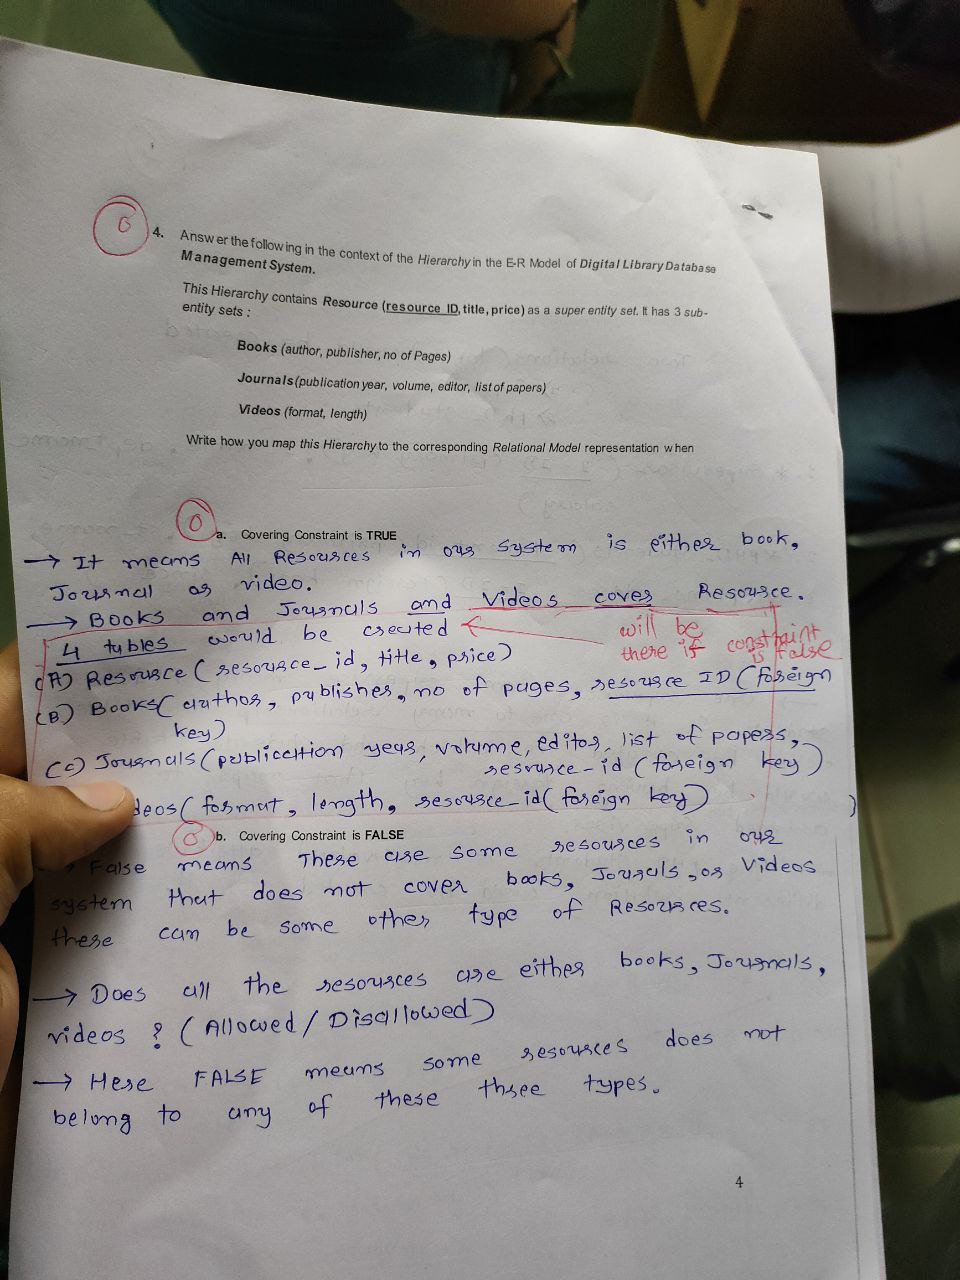 0
4. Answer the following in the context of the Hierarchy in the E-R Model of Digital Library Database
Management System.
This Hierarchy contains Resource (resource_ID, title, price) as a super entity set. It has 3 sub-
entity sets :
Books (author, publisher, no of Pages)
Journals (publication year, volume, editor, list of papers)
Videos (format, length)
Write how you map this Hierarchy to the corresponding Relational Model representation when
0
a. Covering Constraint is TRUE
→ It means All Resources in our system is either book,
Journal or video.
→ Books and Journals and Videos cover Resource.
4 tables would be created
will be
there if constraint
is false
(A) Resource (resource_id, title, price)
(B) Books (author, publisher, no of pages, resource ID (foreign
key)
(C) Journals (publication year, volume, editor, list of papers,
resource-id (foreign key)
deos (format, length, resource_id (foreign key) )
0
b. Covering Constraint is FALSE
→ False means These are some resources in our
system that does not cover books, Jourals, or Videos
there can be some other type of Resources.
→ Does all the resources are either books, Journals,
videos ? (Allowed / Disallowed)
→ Here FALSE means some resources does not
belong to any of these three types.
4